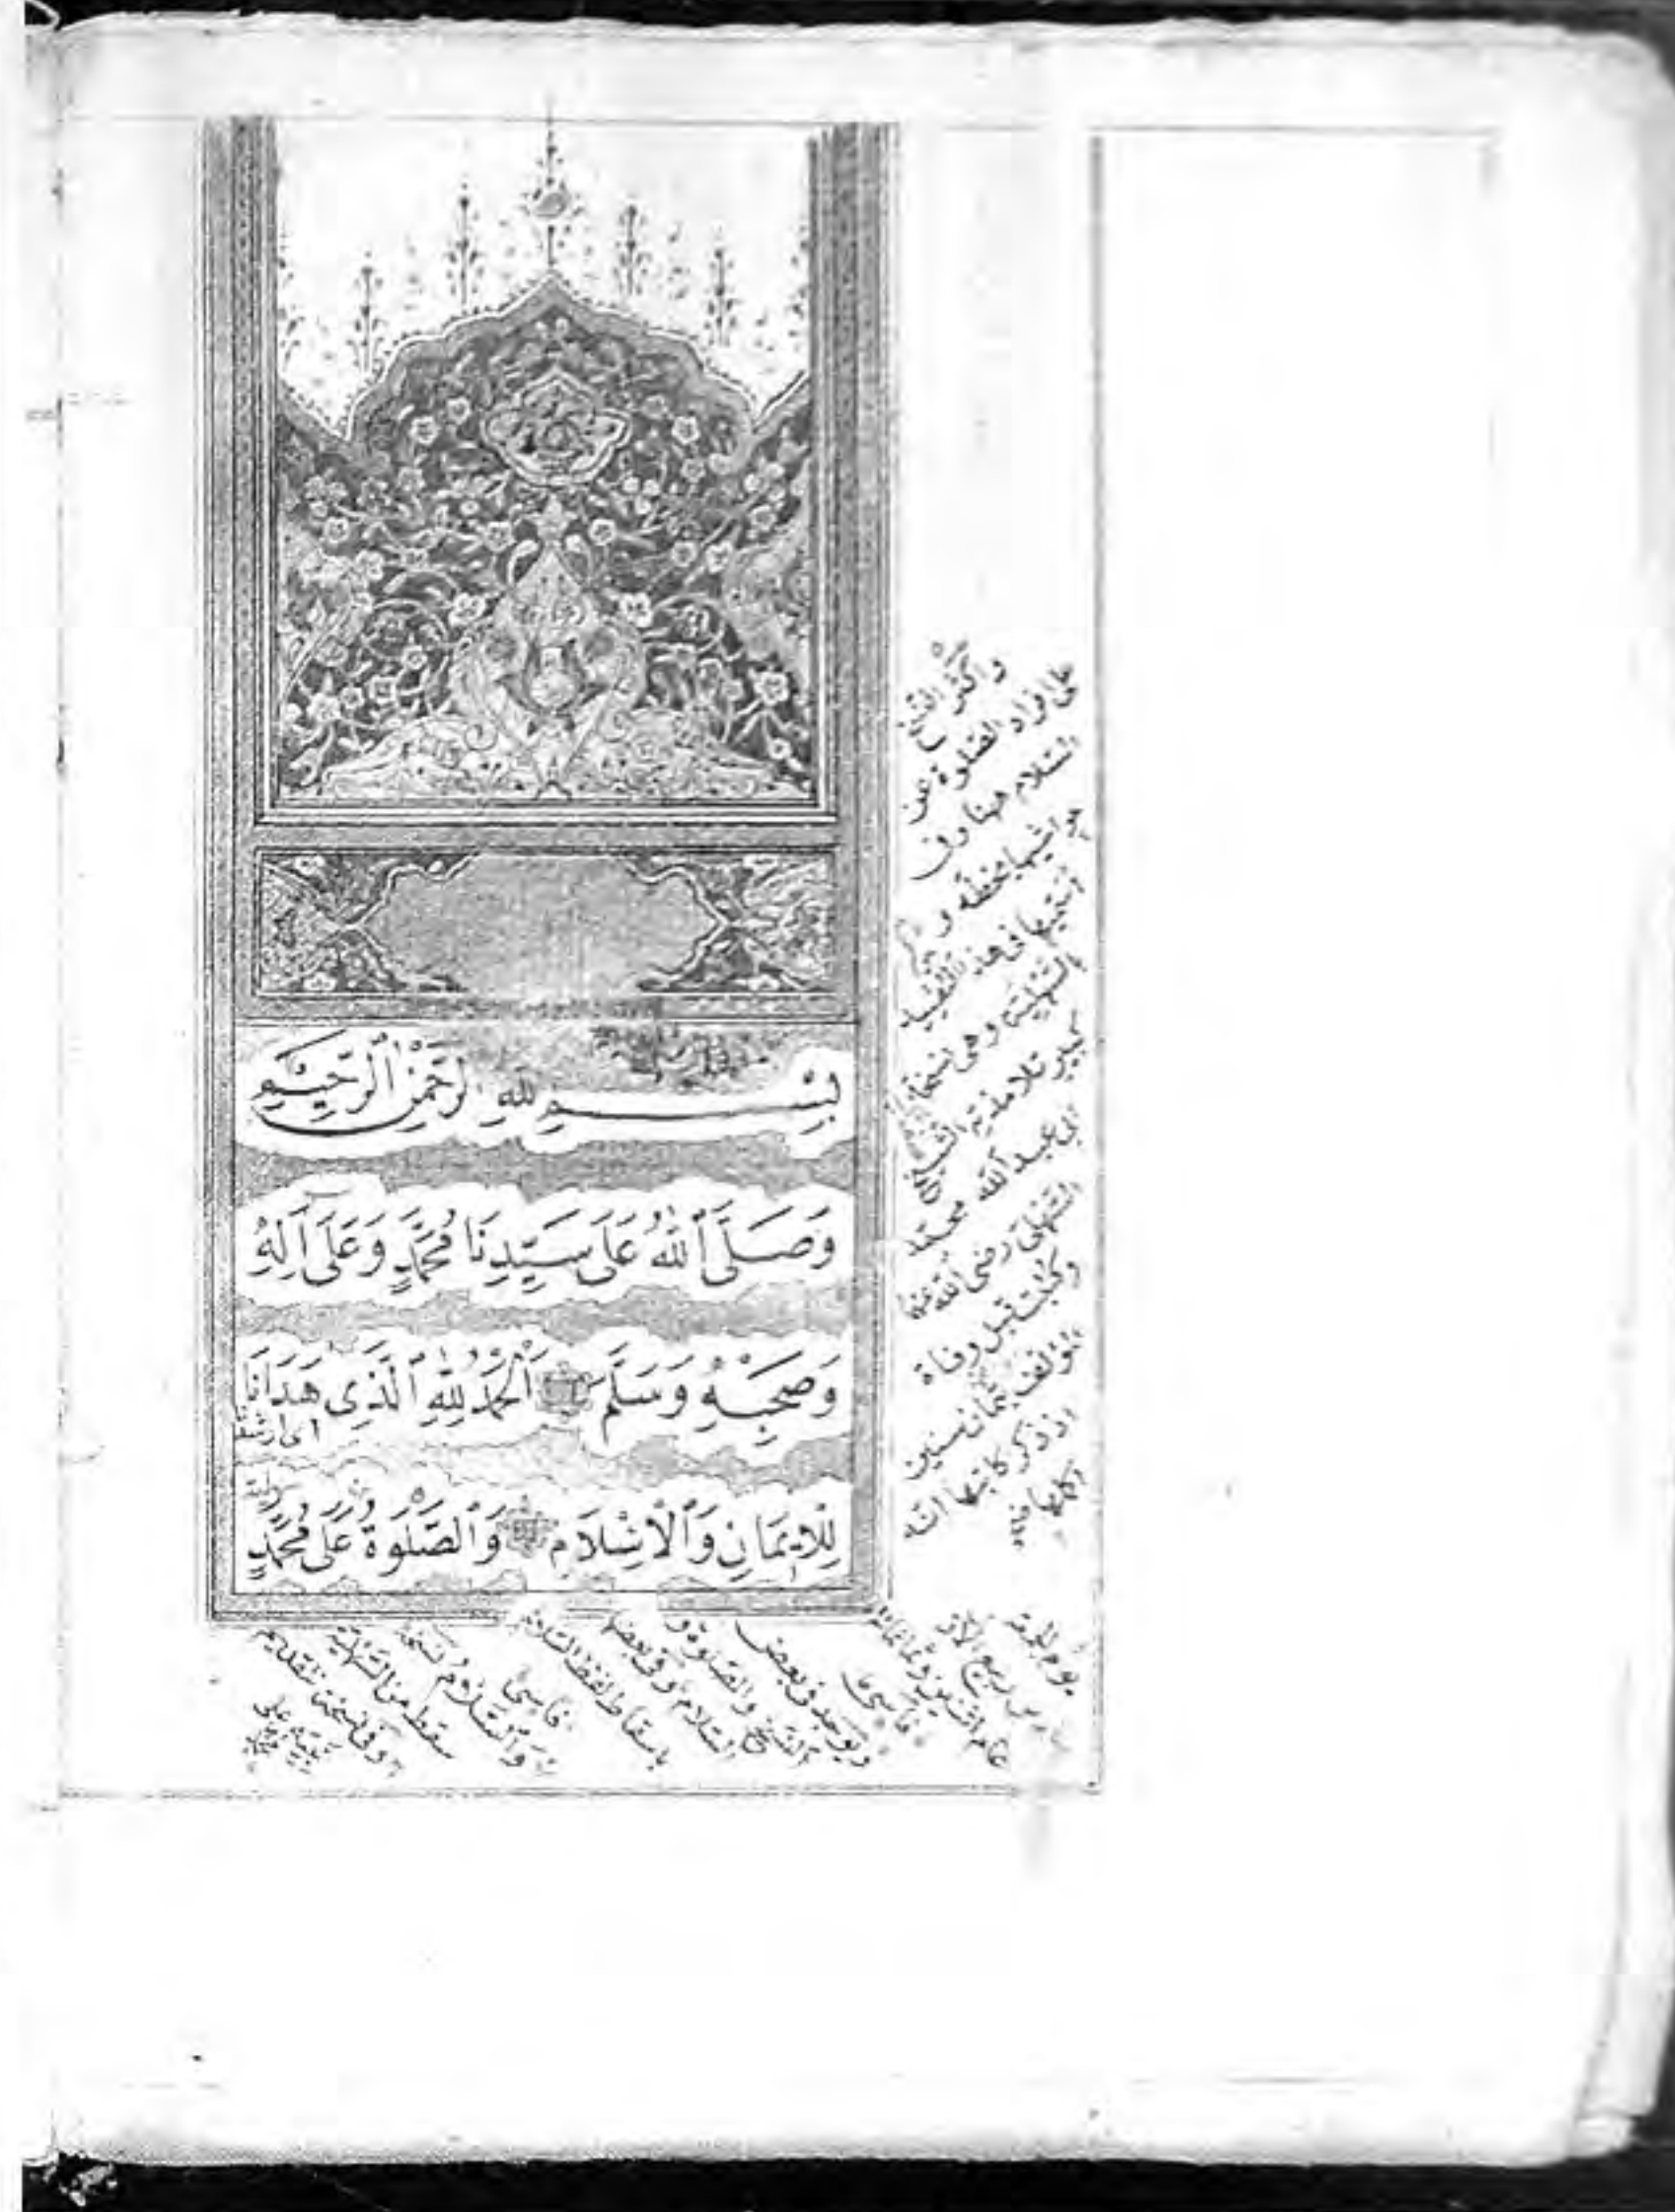 بِسْمِ اللهِ الرَّحْمٰنِ الرَّحِيْمِ
وَصَلَّى ٱللّٰهُ عَلَى سَيِّدِنَا مُحَمَّدٍ وَعَلَى آلِهِ
وَصَحْبِهِ وَسَلَّمَ اَلْحَمْدُ لِلّٰهِ ٱلَّذِى هَدَانَا
لِلْاِيمَانِ وَٱلْاِسْلَامِ وَٱلصَّلٰوةُ عَلَى مُحَمَّدٍ
واكثر النسخ
على افراد الصلوة عن
السلام هنا وفى
حواشيها بخطه
السهلية وهى نسخة
كبير تلامذته الشيخ
ابى عبد الله محمد
السهلى رضى الله عنهما
وكتبت قبل وفاة
المؤلف بثمان سنين
اذ ذكر كاتبها انه
اكملها فيه
يوم الجمعة
سادس ربيع الاول
فاسى
ويوجد فى بعض
النسخ والصلوة و
السلام وفى بعضها
باسقاط لفظ السلام
فاسى
والسلام نسخة
سقط من السهلية
وفى نسخة